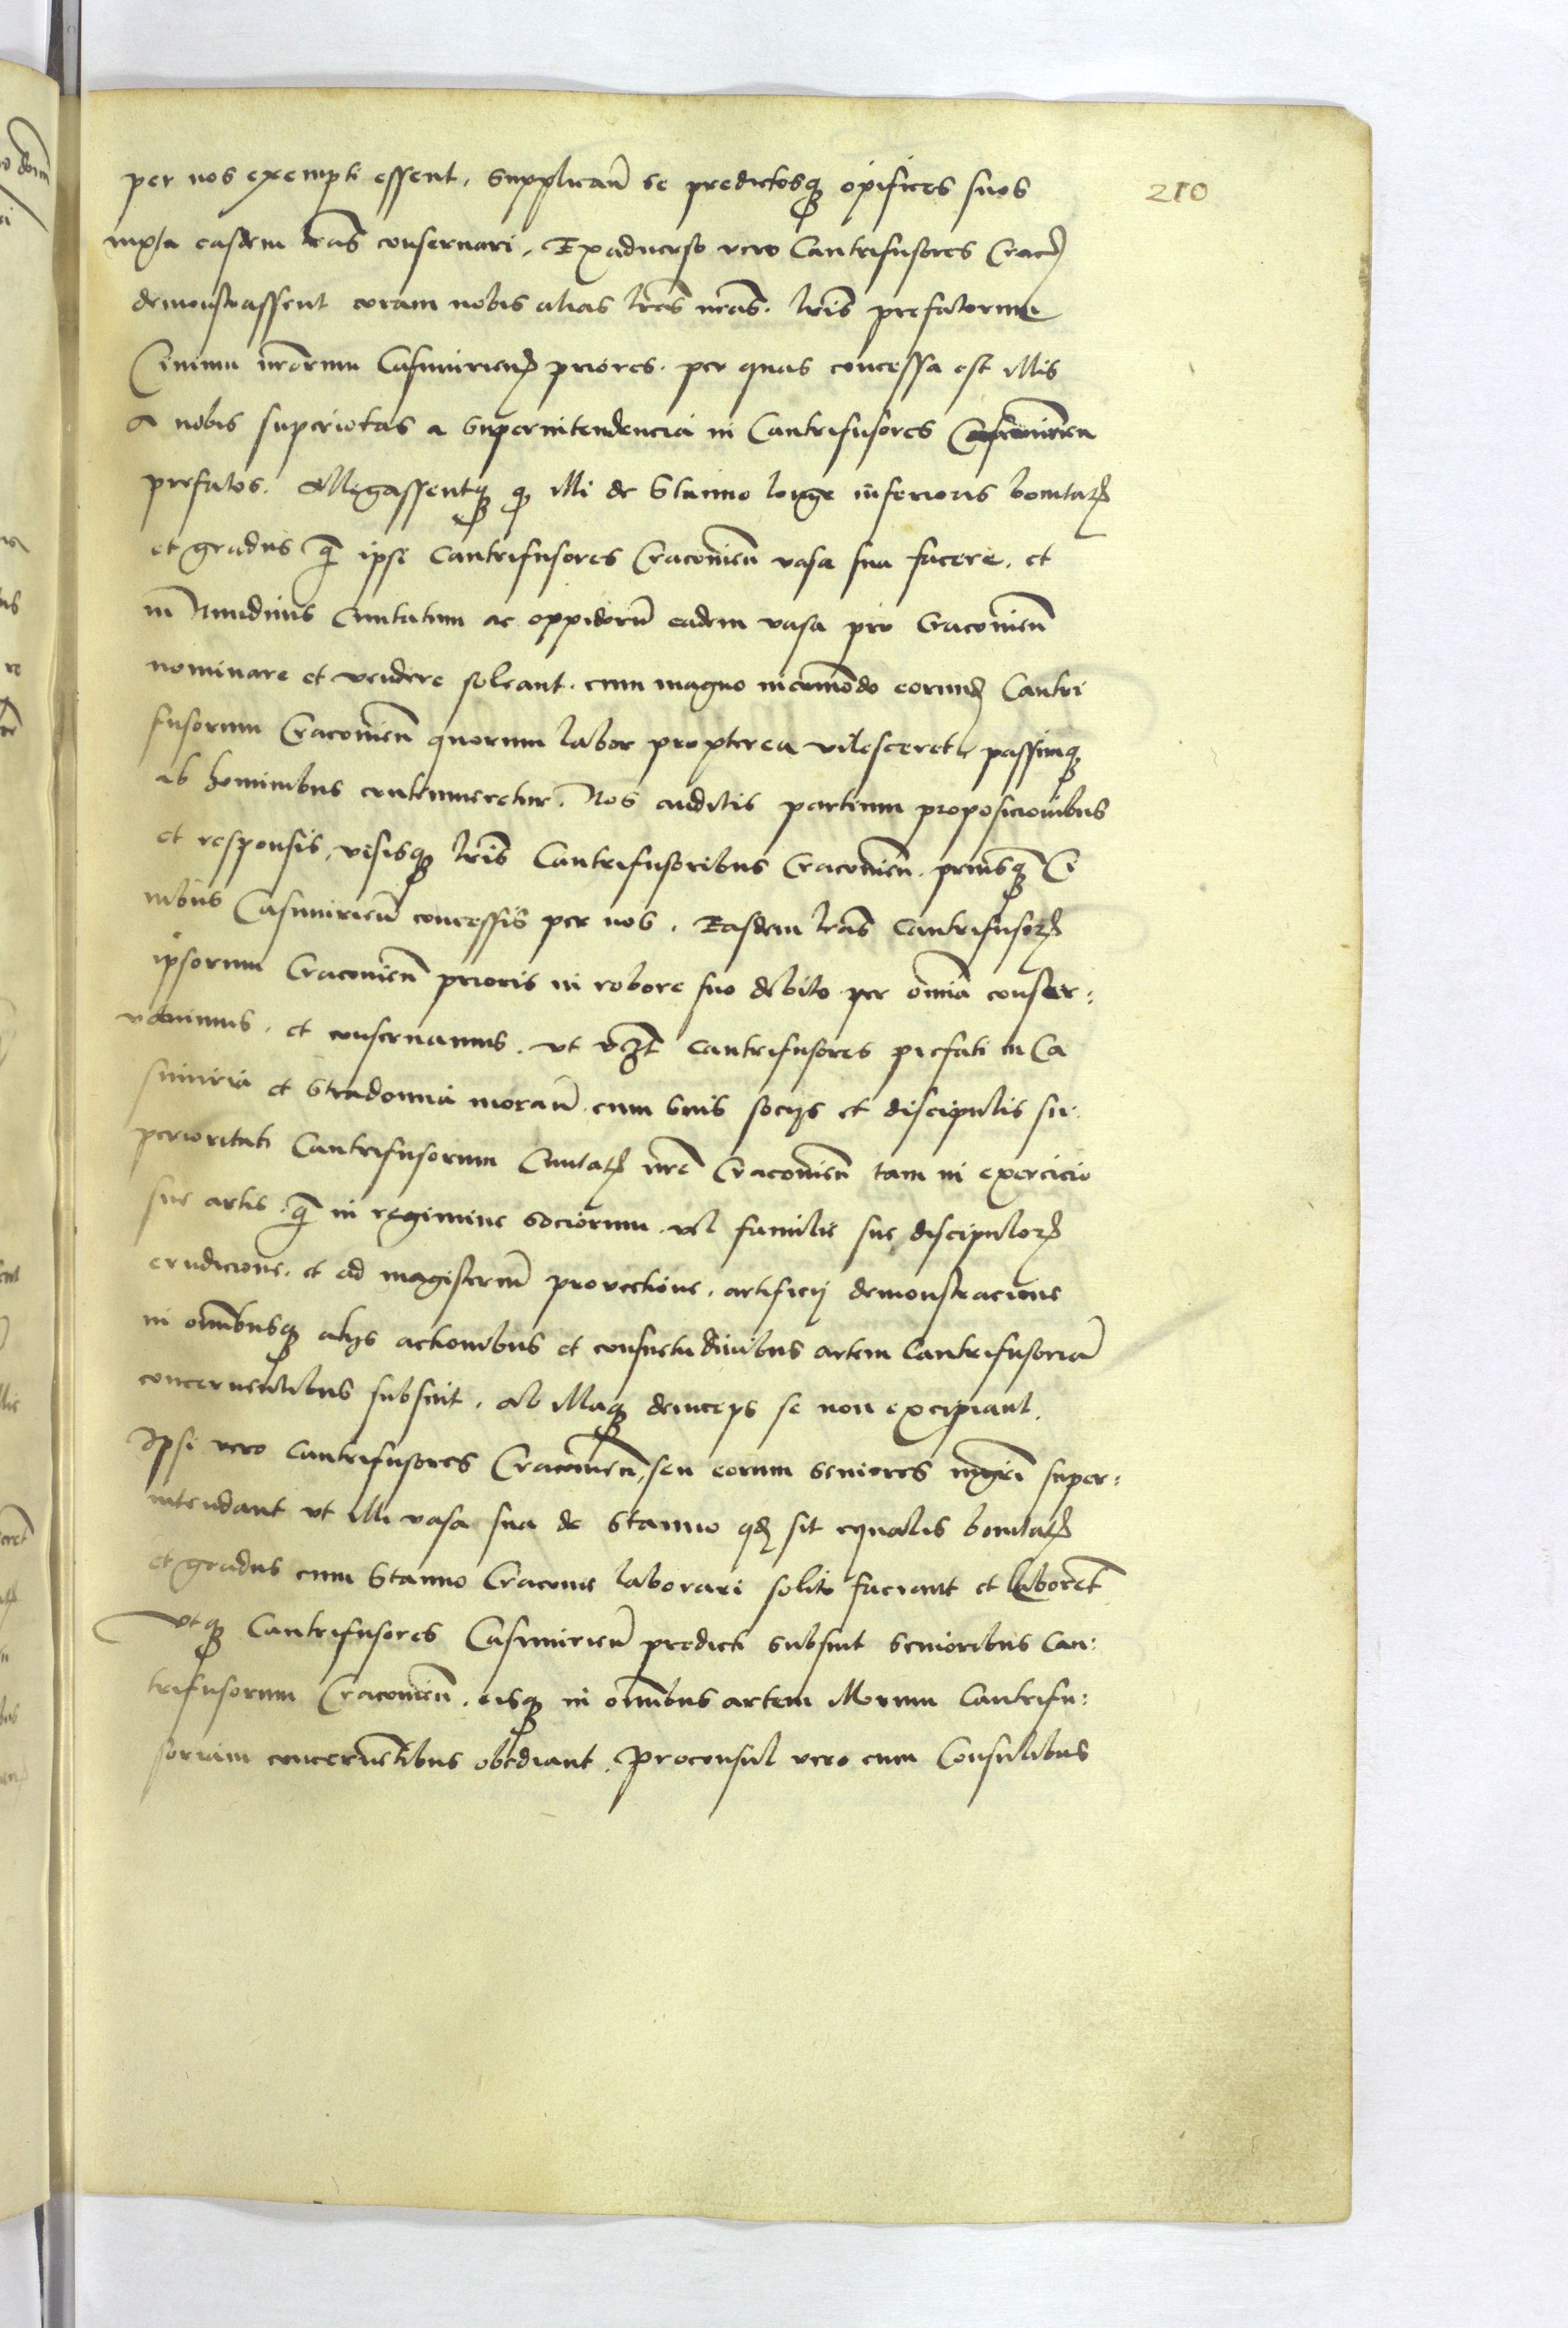 210
per nos exempti essent, supplicań se predictosq̨ opifices suos
iuxta easdem lr̃as conseruari. Exaduerso vero Cantrifusores Cracoṽ
demonstrassent coram nobis alias lr̃as nr̃as lr̃is prefatorum
Ciuium nr̃orum Casimirień priores. per quas concessa est illis
a nobis superiotas a superintendencia in Cantrifusores Casimirień
prefatos. Allegassentq̨ q̨ illi de Stanno longe inferioris bonitatꝭ
et gradus q̃ ipsi Cantrifusores Cracovień vasa sua facere. et
in Nundinis Ciuitatum ac oppidorũ eadem vasa pro Cracovień
nominare et vendere soleant. cum magno incõmodo eorumd Cantri
fusorum Cracovień quorum labor propterea vilesceret, passimq̨
ab hominibus contemneretur. Nos auditis partium proposicionibus
et responsis, visisq̨ lr̃is Cantrifusoribus Cracovień. priusq̨ Ci
uibus Casimirień concessis per nos. Easdem lr̃as Cantrifusorꝝ
ipsorum Cracovień prioris in robore suo debito per om̃ia conser:
vauimus. et conseruamus. vt vꝫt Cantrifusores prefati in Ca
simiria et Stradomia morań. cum suis socijs et discipulis su
perioritati Cantrifusorum Ciuitatꝭ nr̃e Cracovień tam in exercicio
sue artis. q̃ in regimine sociorum. vel familie sue, discipulorꝝ
erudicione. et ad magisteriũ prouectione. artificij demonstracione
in om̃ibusq̨ alijs actionibus et consuetudinibus artem Cantrifusoriã
concernentibus subsint. Ab illaq̨ deinceps se non excipiant.
Ipsi vero Cantrifusores Cracovień, seu eorum seniores mgr̃i super:
intendant vt illi vasa sua de Stanno qd sit equalis bonitatꝭ
et gradus cum Stanno Cracovie laborari solito faciant et laborẽt
vtq̨ Cantrifusores Casimirień predicti subsint senioribus Can:
trifusorum Cracovień. eisq̨ in om̃ibus artem illorum Cantrifu:
soriam concernẽtibus obediant. Proconsul vero cum Consulibus